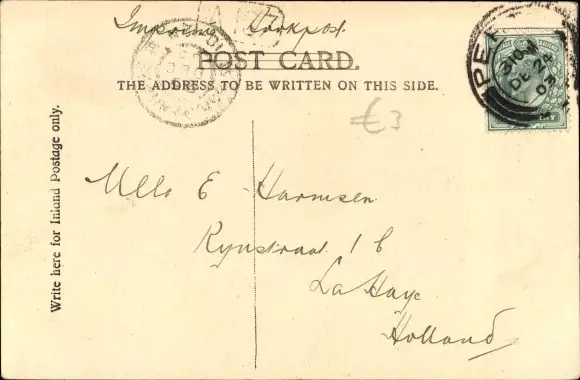 POST CARD.
THE ADDRESS TO BE WRITTEN ON THIS SIDE.
DE 24
03
£3
Write here for Inland Postage only.
Mlle E Harmsen
Rynstraat 16
La Haye
Holland